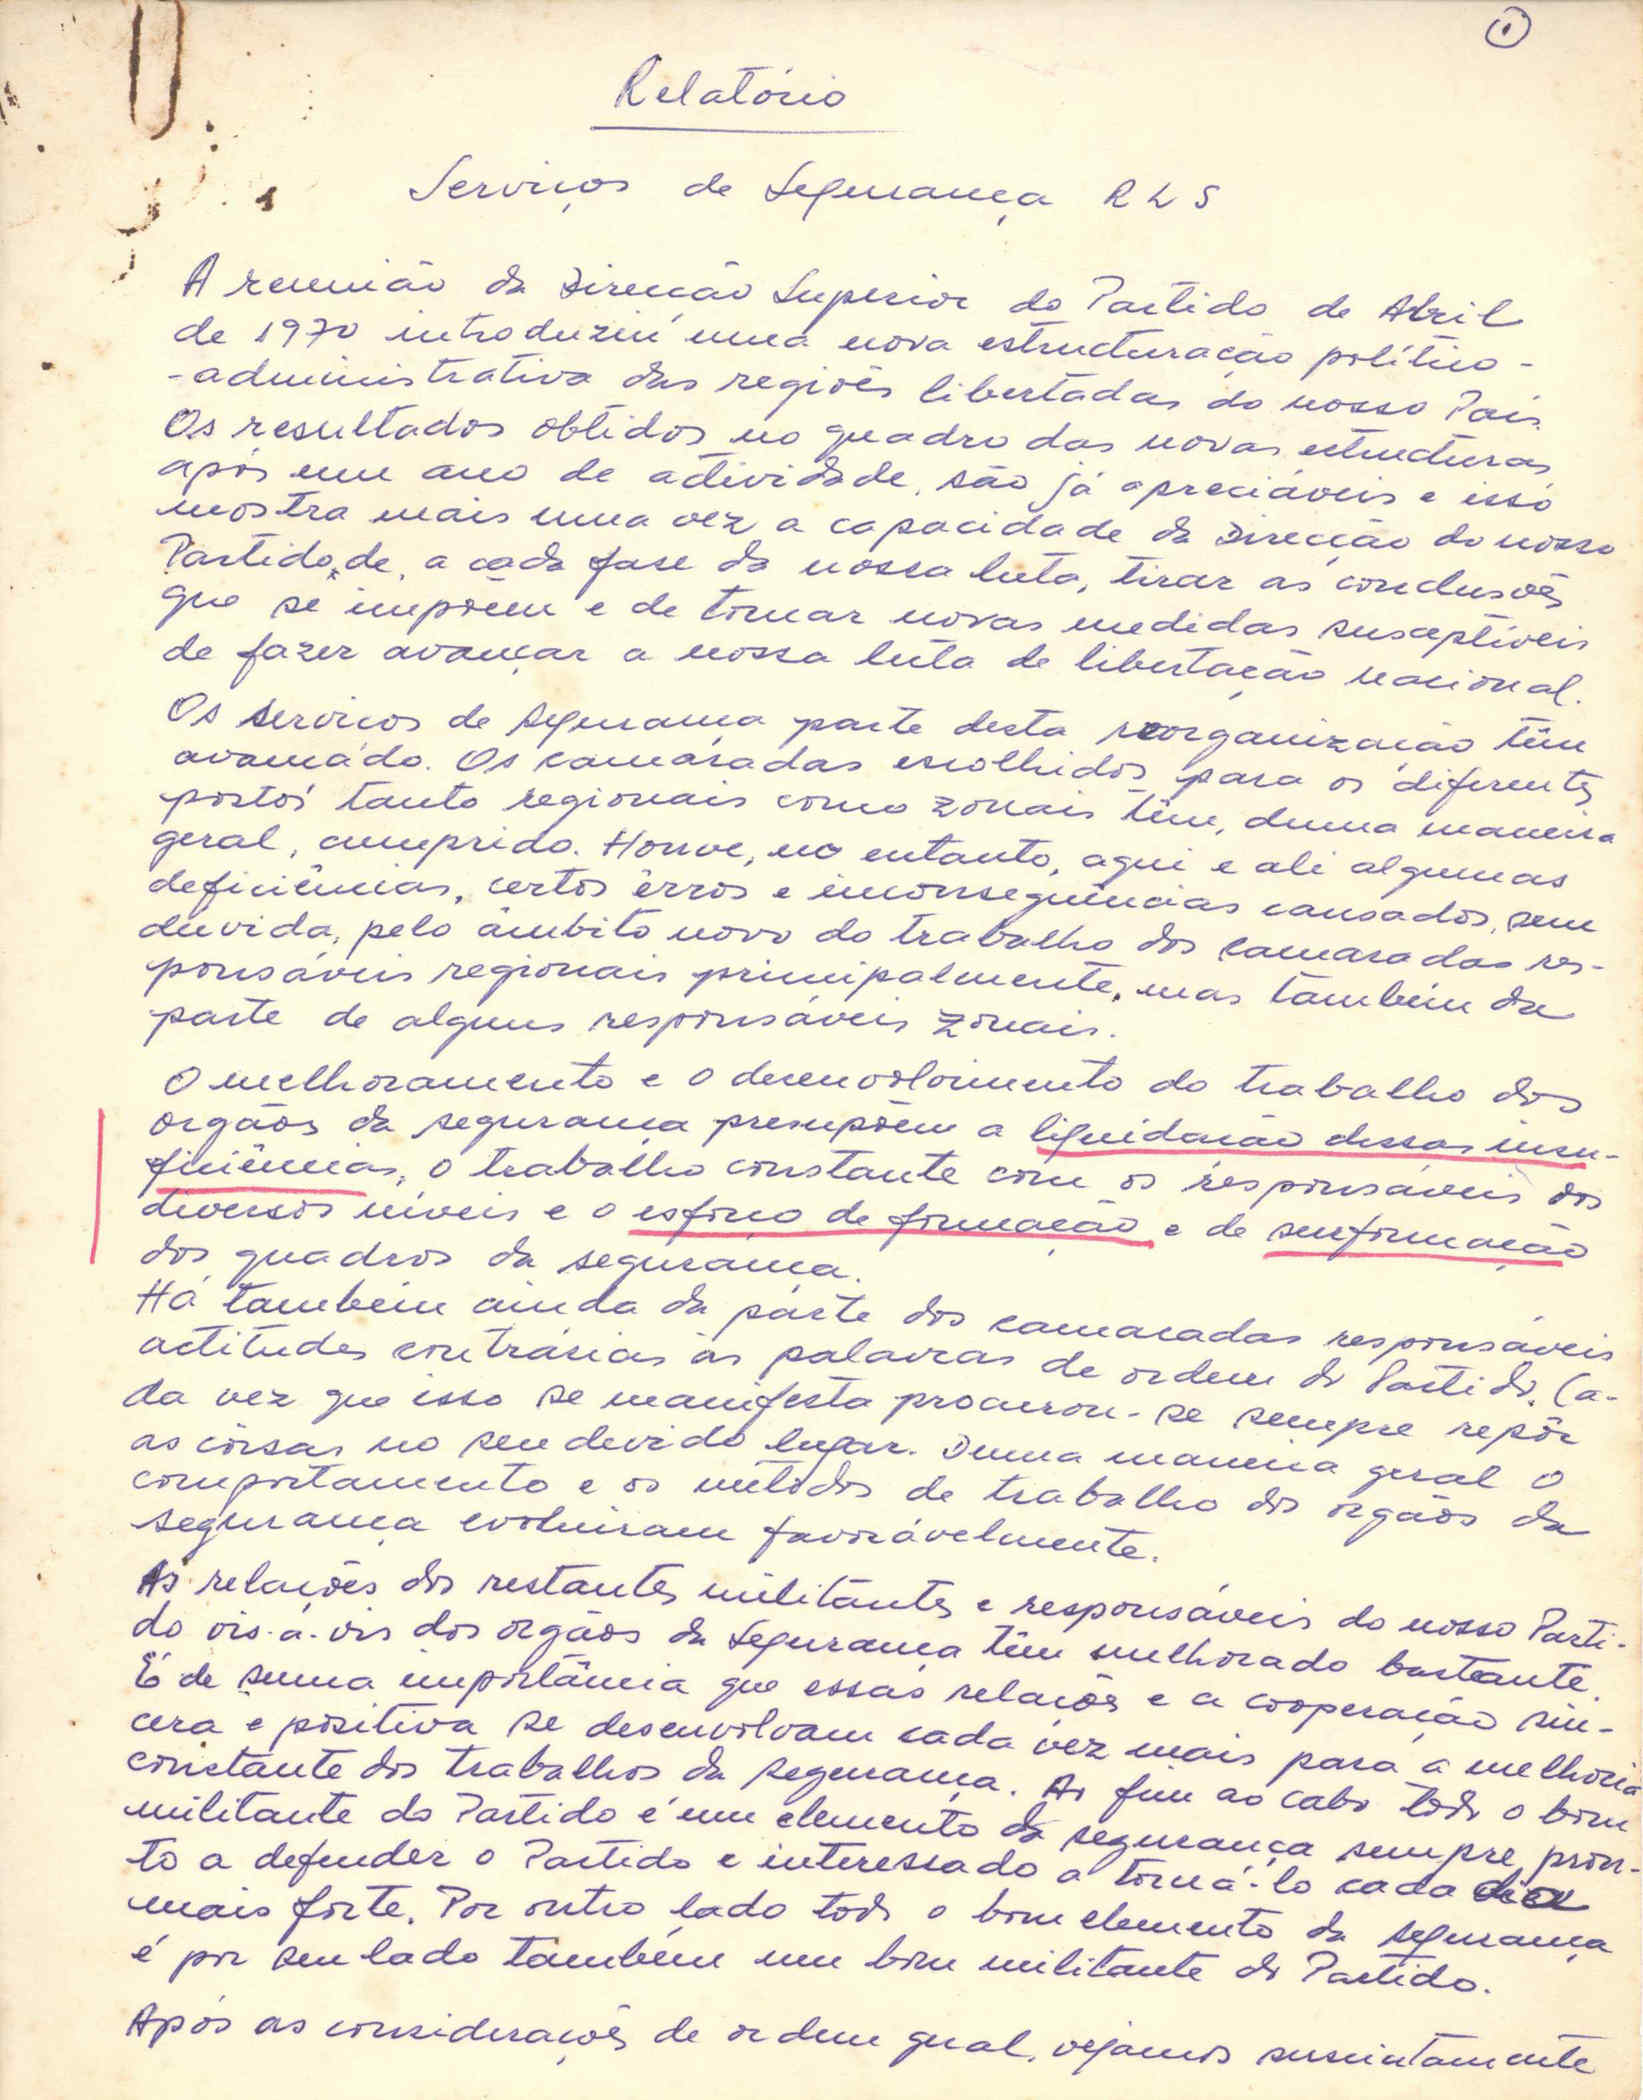 1
Relatório
Serviços de Segurança R L S
A reunião da Direcção Superior do Partido de Abril
de 1970 introduziu uma nova estructuração político-
-administrativa das regiões libertadas do nosso País.
Os resultados obtidos no quadro das novas estructuras
após um ano de actividade, são já apreciáveis e isso
mostra mais uma vez a capacidade da Direcção do nosso
Partido, de, a cada fase da nossa luta, tirar as conclusões
que se impõem e de tomar novas medidas susceptíveis
de fazer avançar a nossa luta de libertação nacional.
Os serviços de segurança parte desta reorganização têm
avançado. Os camaradas escolhidos para os diferentes
postos tanto regionais como zonais têm, duma maneira
geral, cumprido. Houve, no entanto, aqui e ali algumas
deficiências, certos êrros e inconsequências causados, sem
dúvida, pelo âmbito novo do trabalho dos camaradas res-
ponsáveis regionais principalmente, mas também da
parte de alguns responsáveis zonais.
O melhoramento e o desenvolvimento do trabalho dos
orgãos da segurança presupõem a liquidação dessas insu-
ficiências, o trabalho constante com os responsáveis dos
diversos níveis e o esforço de formação e de
dos quadros da segurança.
Há também ainda da parte dos camaradas responsáveis
actitudes contrárias às palavras de ordem do Partido. Ca-
da vez que isso se manifesta procurou-se sempre repôr
as coisas no seu devido lugar. Duma maneira geral o
comportamento e os métodos de trabalho dos orgãos da
segurança evoluiram favorávelmente.
As relações dos restantes militantes e responsáveis do nosso Parti-
do vis-à-vis dos orgãos da Segurança têm melhorado bastante.
É de suma importância que essas relações e a cooperação sin-
cera e positiva se desenvolvam cada vez mais para a melhoria
constante dos trabalhos da segurança. Ao fim ao cabo todo o bom
militante do Partido é um elemento da segurança sempre pron-
to a defender o Partido e interessado a torná-lo cada dia
mais forte. Por outro lado todo o bom elemento da segurança
é por seu lado também um bom militante do Partido.
Após as considerações de ordem geral, vejamos suscintamente